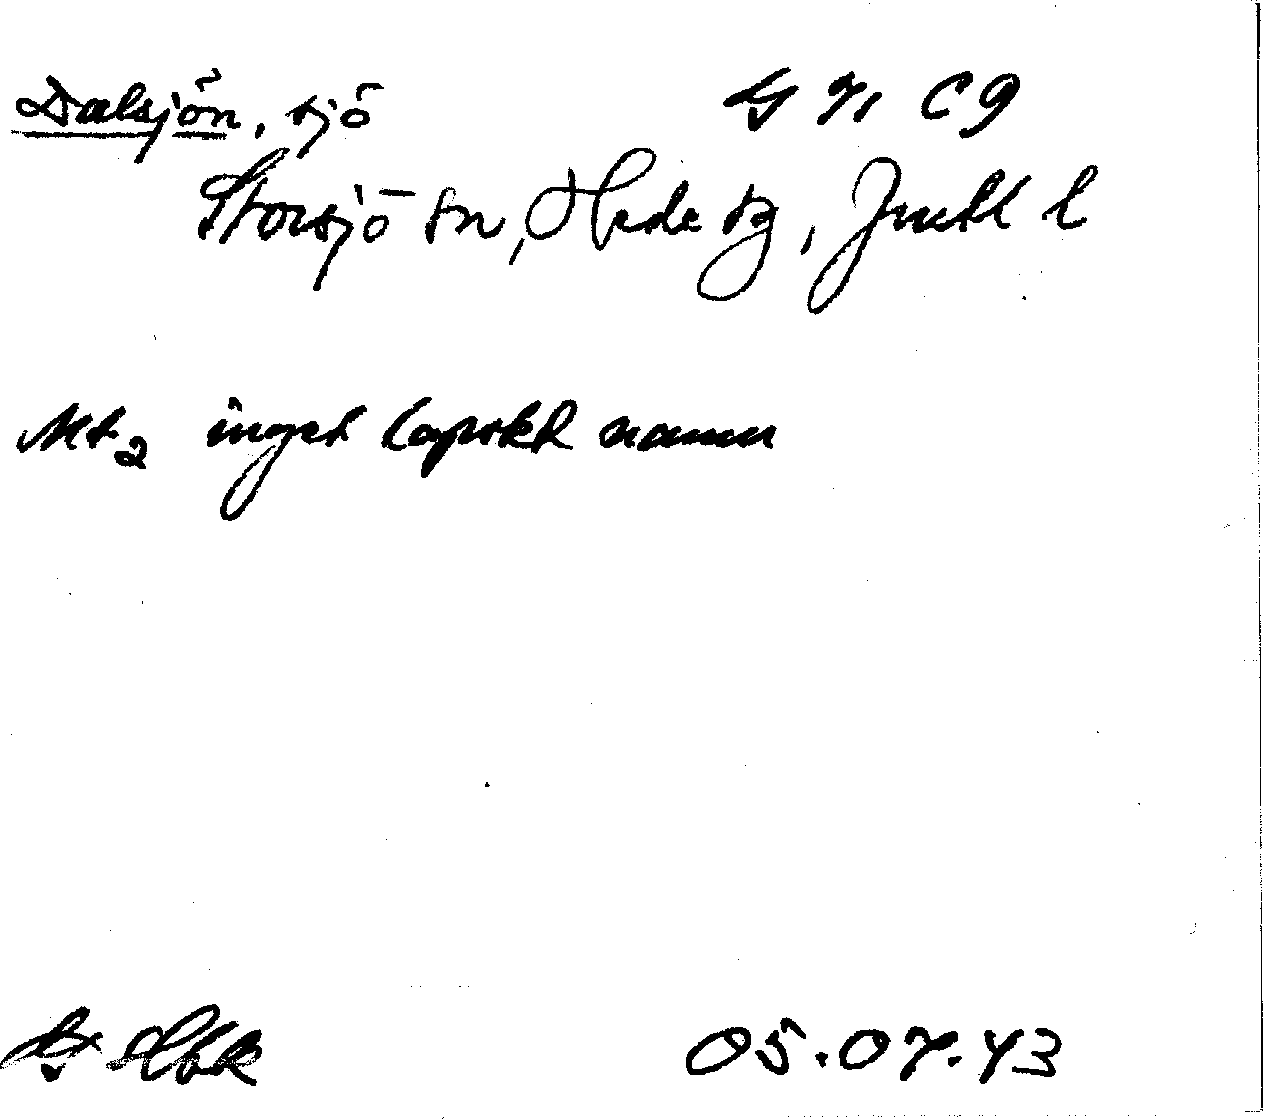 Dalsjön, sjö G 71 C9
Storsjö sn, Hede tg, Jmtl l
Mt2 inget lapskt namn
05.07.43